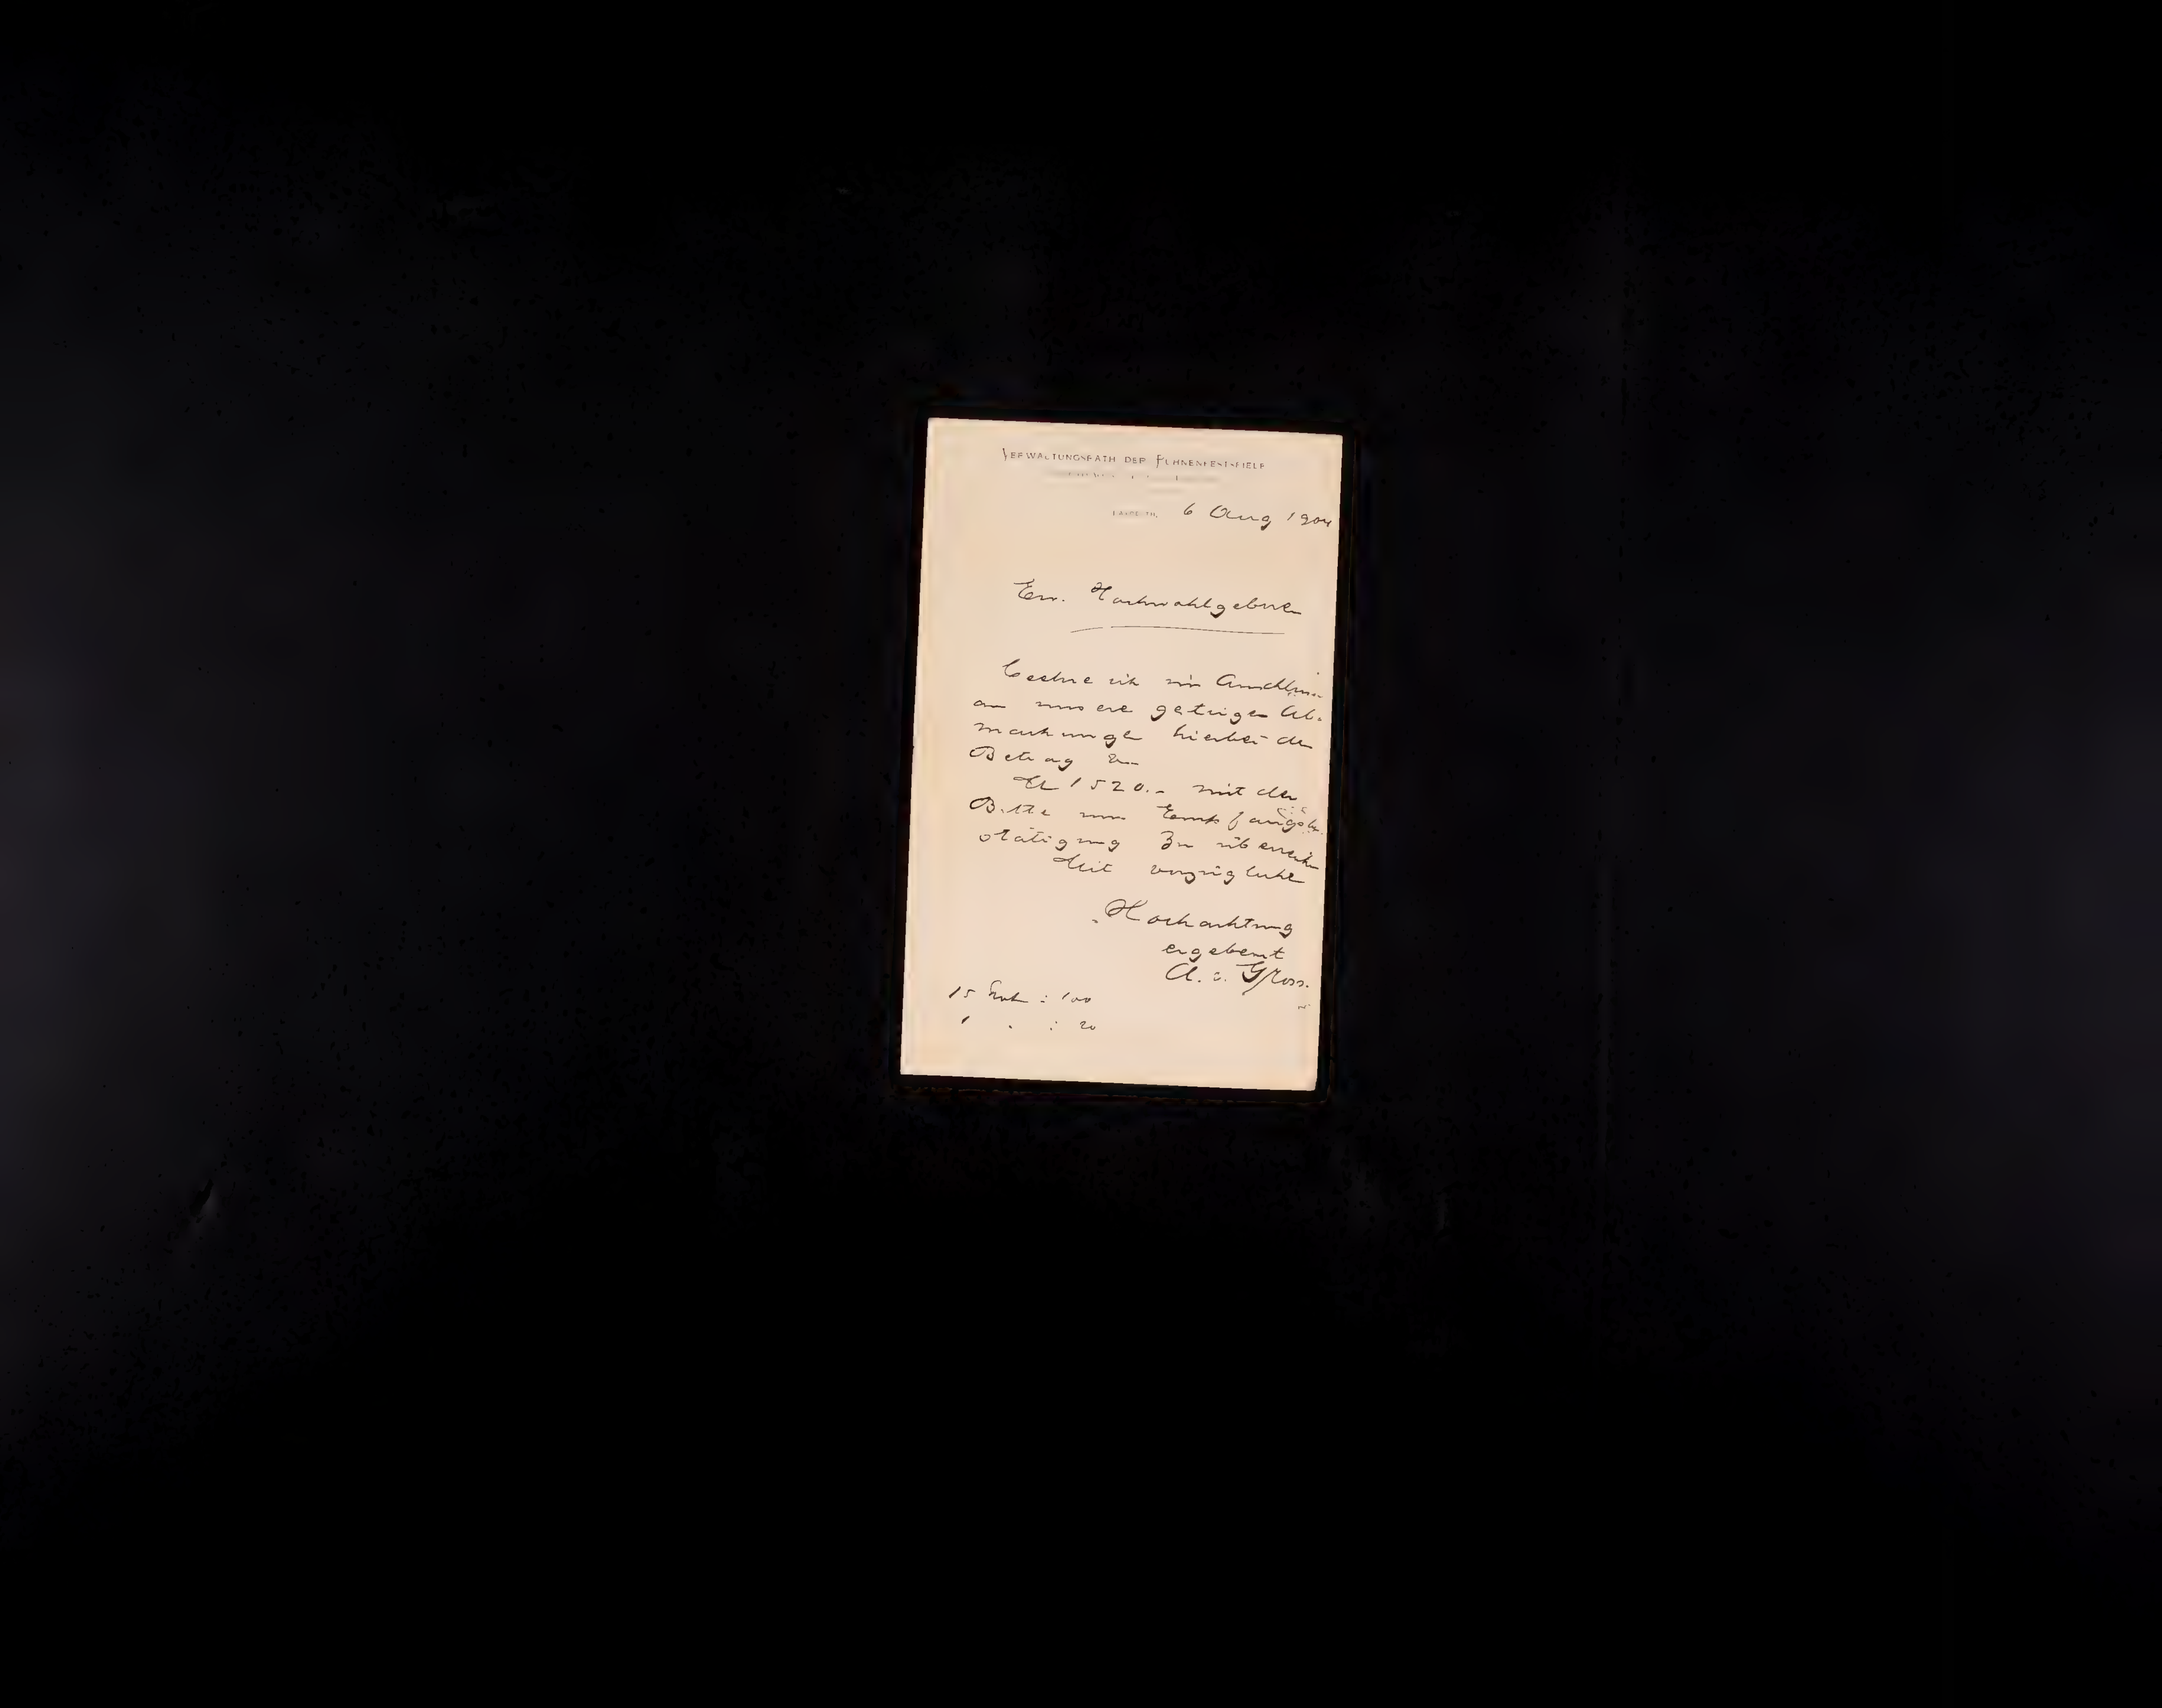 VERWALTUNGSRATH DER BÜHNENFESTSPIELE
BAYREUTH, 6 Aug 1904
Ew. Hochwohlgeboren
beehre ich mir im Anschluss
an unsere gestrigen Ab-
machungen hierbei den
Betrag von
M 1520.- mit der
Bitte um Empfangsbe-
stätigung zu überreichen
Mit vorzüglicher
Hochachtung
ergebenst
A. v. Gross.
15 : 100
1 " : 20